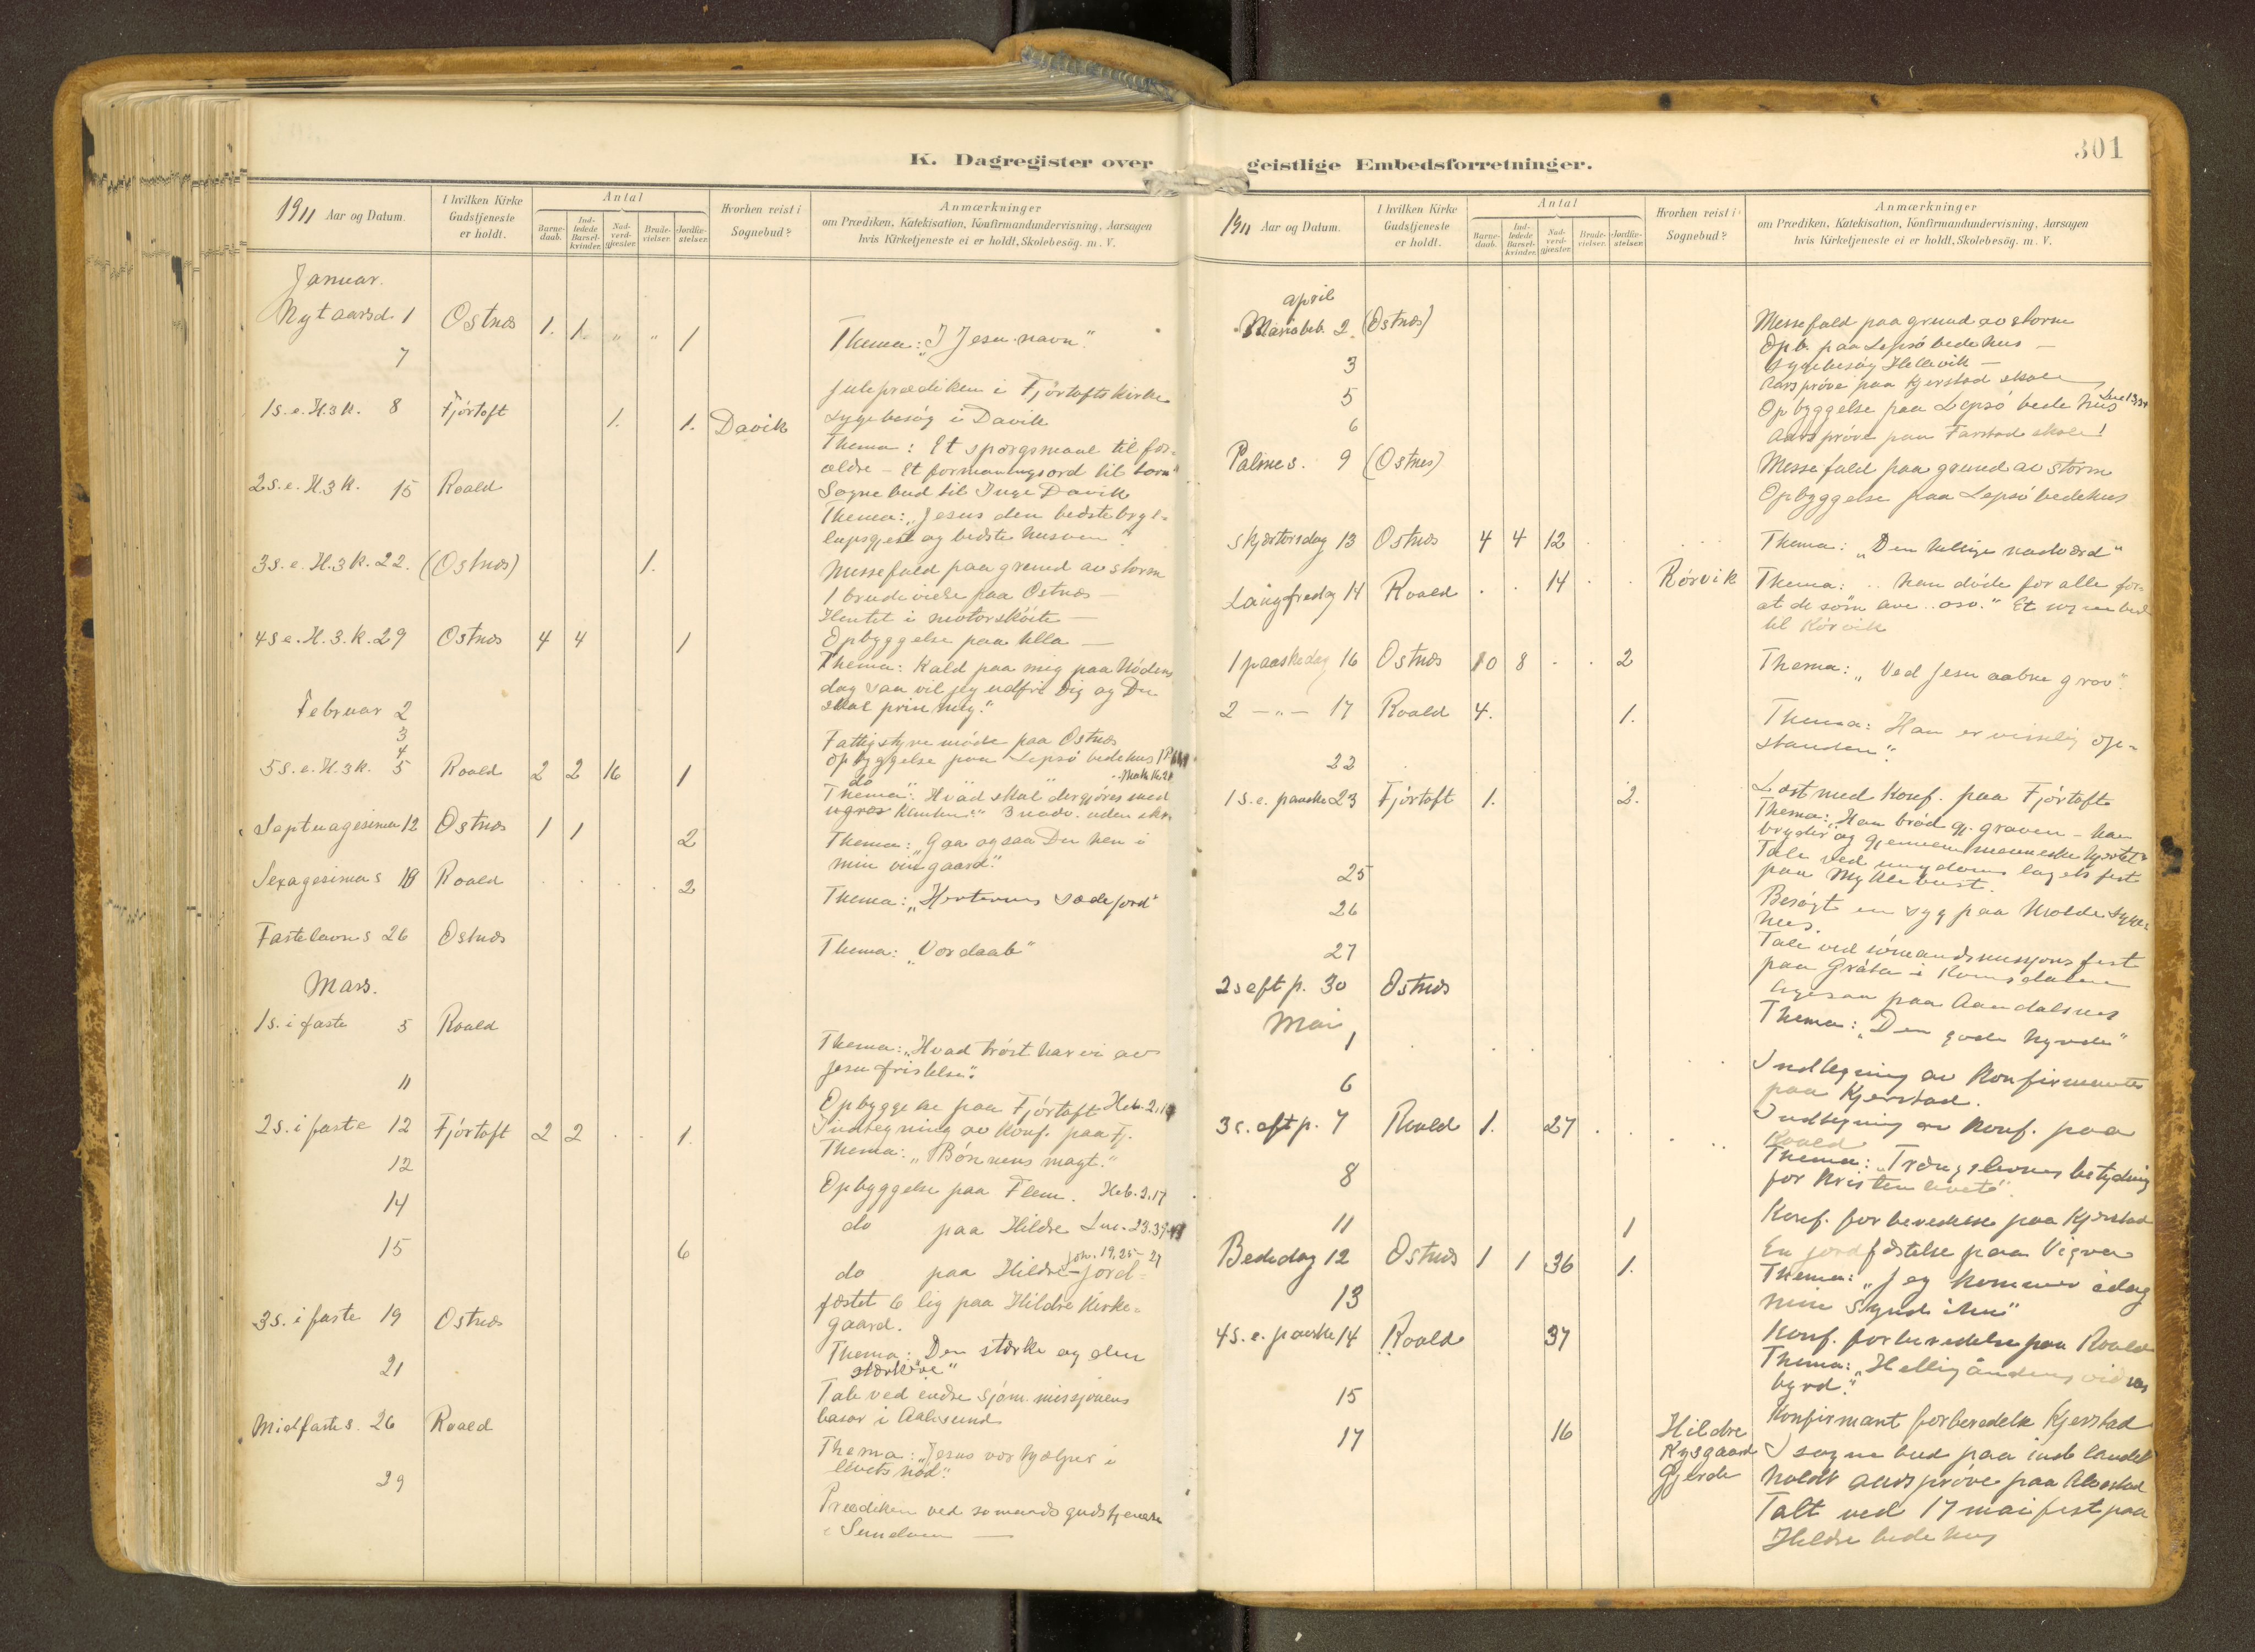 K. Dagregister over geistlige Embedsforretninger.
301
1911 Aar og Datum.
I hvilken Kirke Gudstjeneste er holdt.
Antal
Barnedaab.
Indledede Barselkvinder.
Nadverdgjester.
Brudevielser.
Jordfæstelser.
Hvorhen reist i Sognebud?
Anmærkninger
om Prædiken, Katekisation, Konfirmandundervisning, Aarsagen
hvis Kirketjeneste ei er holdt, Skolebesög. m. V.
Januar.
Nytaarsd. 1 Ostnæs 1. 1. " " 1 Thema: "I Jesu navn".
7 Juleprædiken i Fjörtofts kirke
Sygebesög i Davik
1 s.e.H.3k. 8 Fjörtoft 1. 1. Davik
Thema: Et spørgsmaal til for-
ældre - Et formaningsord til børn"
Sognebud til Inge Davik
2 s.e.H.3k. 15 Roald
Thema: "Jesus den bedste bryl-
lupsgjest og bedste husven".
3 s.e.H.3k. 22. (Ostnæs) 1. Messefald paa grund av storm
1 brudevielse paa Ostnæs -
Hentet i motorsköite -
Opbyggelse paa Ulla -
4 s.e.H.3.k. 29 Ostnæs 4 4 1
Thema: Kald paa mig paa Nödens
dag saa vil jeg udfri Dig og Du
skal prise mig."
Februar 2 Fattigstyremöde paa Ostnæs
3 Opbyggelse paa Lepsö bedehus
4 do
5 s.e.H.3k. 5 Roald 2 2 16 1
Thema: Hvad skal der gjöres med
ugræs
Septuagesima 12 Ostnæs 1 1 2 Thema: "Gaa ogsaa Du hen i
min vingaard".
Sexagesima s 18 Roald 2 Thema: "Herternes sædejord"
Fastelavns 26 Ostnæs Thema: "Vor daab"
Mars.
1 s. i faste 5 Roald Thema: "Hvad tröst har vi av
Jesu fristelse".
11 Opbyggelse paa Fjörtoft Heb. 2,17
Indtegning av Konf. paa Fj.
2 s. i faste 12 Fjörtoft 2 2 1. Thema: "Bönnens magt."
12 Opbyggelse paa Flem. Heb. 2,17
14 do paa Hildre Luc. 23.39-43
15 6 do paa Hildre Joh. 19,25-27 - Jord-
fæstet 6 lig paa Hildre Kirke-
gaard.
3 s. i faste 19 Ostnæs Thema: Den stærke og den
stærkere"
21 Tale ved indre sjöm. missjonens
basar i Aalesund
Midfastes. 26 Roald Thema: "Jesus vor hjælper i
livets nöd".
29 Prædiken ved sømands gudstjeneste
1911 Aar og Datum.
I hvilken Kirke Gudstjeneste er holdt.
Antal
Barnedaab.
Indledede Barselkvinder.
Nadverdgjester.
Brudevielser.
Jordfæstelser.
Hvorhen reist i Sognebud?
Anmærkninger
om Prædiken, Katekisation, Konfirmandundervisning, Aarsagen
hvis Kirketjeneste ei er holdt, Skolebesög. m. V.
april
Mariæbeb. 2. (Ostnæs) Messefald paa grund av storm
Opb. paa Lepsö bedehus -
3 Sygebesög Hellevik -
Aarspröve paa Kjerstad skole
5 Opbyggelse paa Lepsö bedehus
6 Aarspröve paa Farstad skole!
Palmes. 9 (Ostnes) Messefald paa grund av storm
Opbyggelse paa Lepsö bedehus
Skjærtorsdag 13 Ostnæs 4 4 12 Thema: "Den hellige nadværd"
Langfredag 14 Roald 14 Rörvik Thema: .. han döde for alle for-
at de som .. osv." Et sognebud
til Rörvik
1 paaskedag 16 Ostnæs 10 8 2 Thema: "Ved Jesu aabne grav".
2 - " - 17 Roald 4. 1. Thema: Han er visselig op-
standen".
22 Læst med Konf. paa Fjörtoft
1 s.e. paaske 23 Fjörtoft 1. 2. Thema: "Han bröd gj. graven - han
bryder og gjennem menneskehjertet"
25 Tale ved ungdomslagets fest
paa Myklebust.
26 Besögt en syg paa Molde Syge-
hus.
27 Tale ved sömandsmissjons fest
paa Gråta i Romsdalen
ligesaa paa Aandalsnes
2 s eft p. 30 Ostnæs Thema: "Den gode hyrde"
Mai
1 Indtegning av Konfirmanter
paa Kjerstad.
6 Indtegning av Konf. paa
Roald
3 s. eft p. 7 Roald 1. 27 Thema: "Trængslernes betydning
for Kristenlivet".
8 Konf. forberedelse paa Kjerstad
11 1 En jordfæstelse paa Vigra
Bededag 12 Ostnæs 1 1 36 1. Thema: "Jeg kommer idag
mine synder ihu"
13 Konf. forberedelse paa Roald
4 s.e. paaske 14 Roald 37 Thema: "Helligåndens vidnes
byrd".
15 Konfirmant forberedelse Kjerstad
17 16 Hildre
Rysgaard
Gjerde
I sognebud paa indlandet
holdt aarspröve paa Alvestad
Talt ved 17 mai fest paa
Hildre bedehus